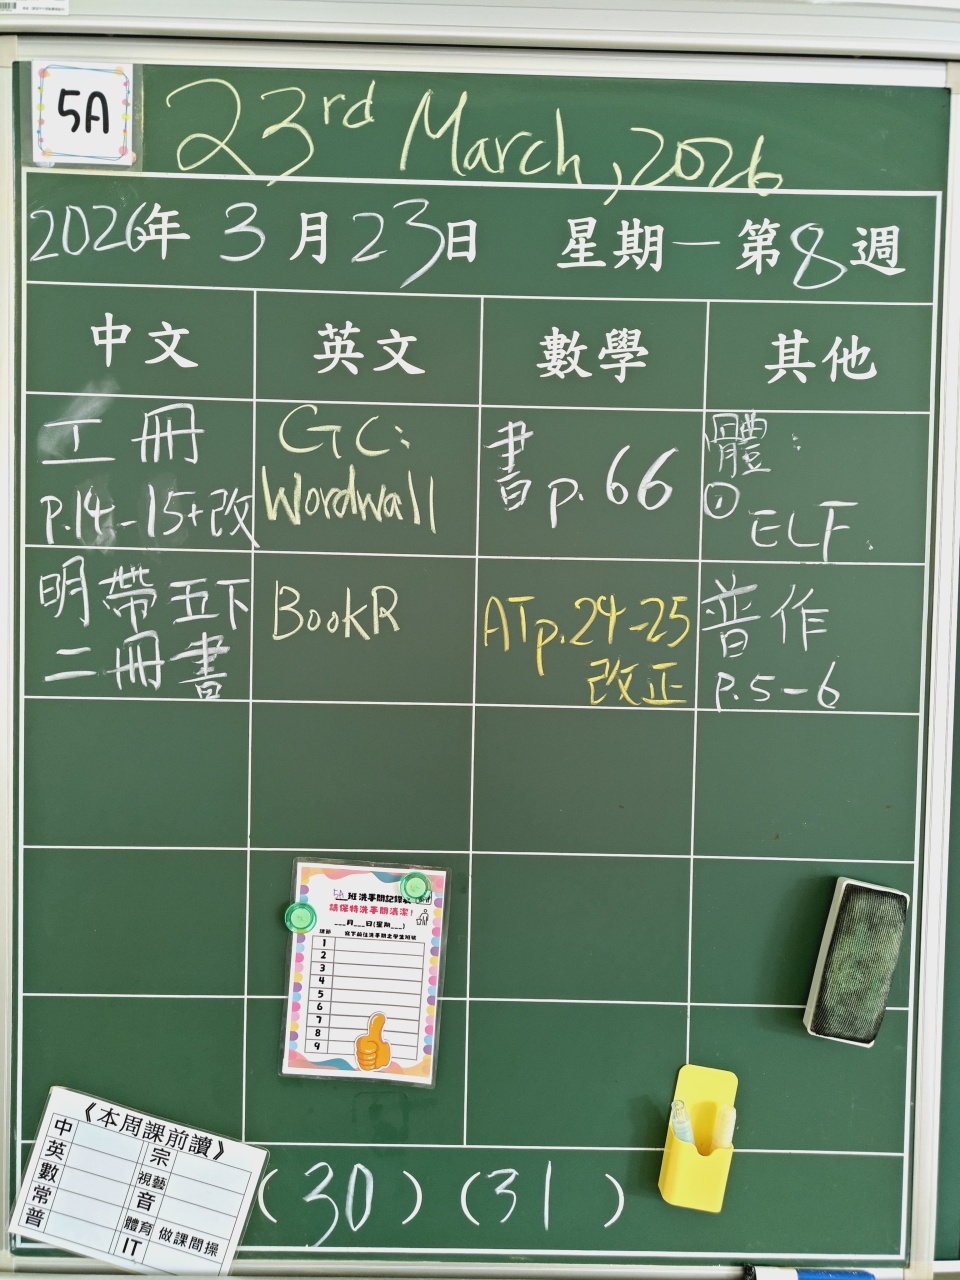 5A
23rd March, 2026
2026年 3月23日 星期一 第8週
中文 英文 數學 其他
工冊
p.14-15+改
GC:
Wordwall
書p.66
體:
① ELF.
明帶五下
二冊書
BookR
ATp.24-25
改正
普作
p.5-6
5A班洗手間記錄表
請保持洗手間清潔!
___月___日(星期___)
課節 寫下前往洗手間之學生班號
1
2
3
4
5
6
7
8
9
《本周課前讀》
中 宗
英 視藝
數 音
常 體育 做課間操
普 IT
(30) (31)